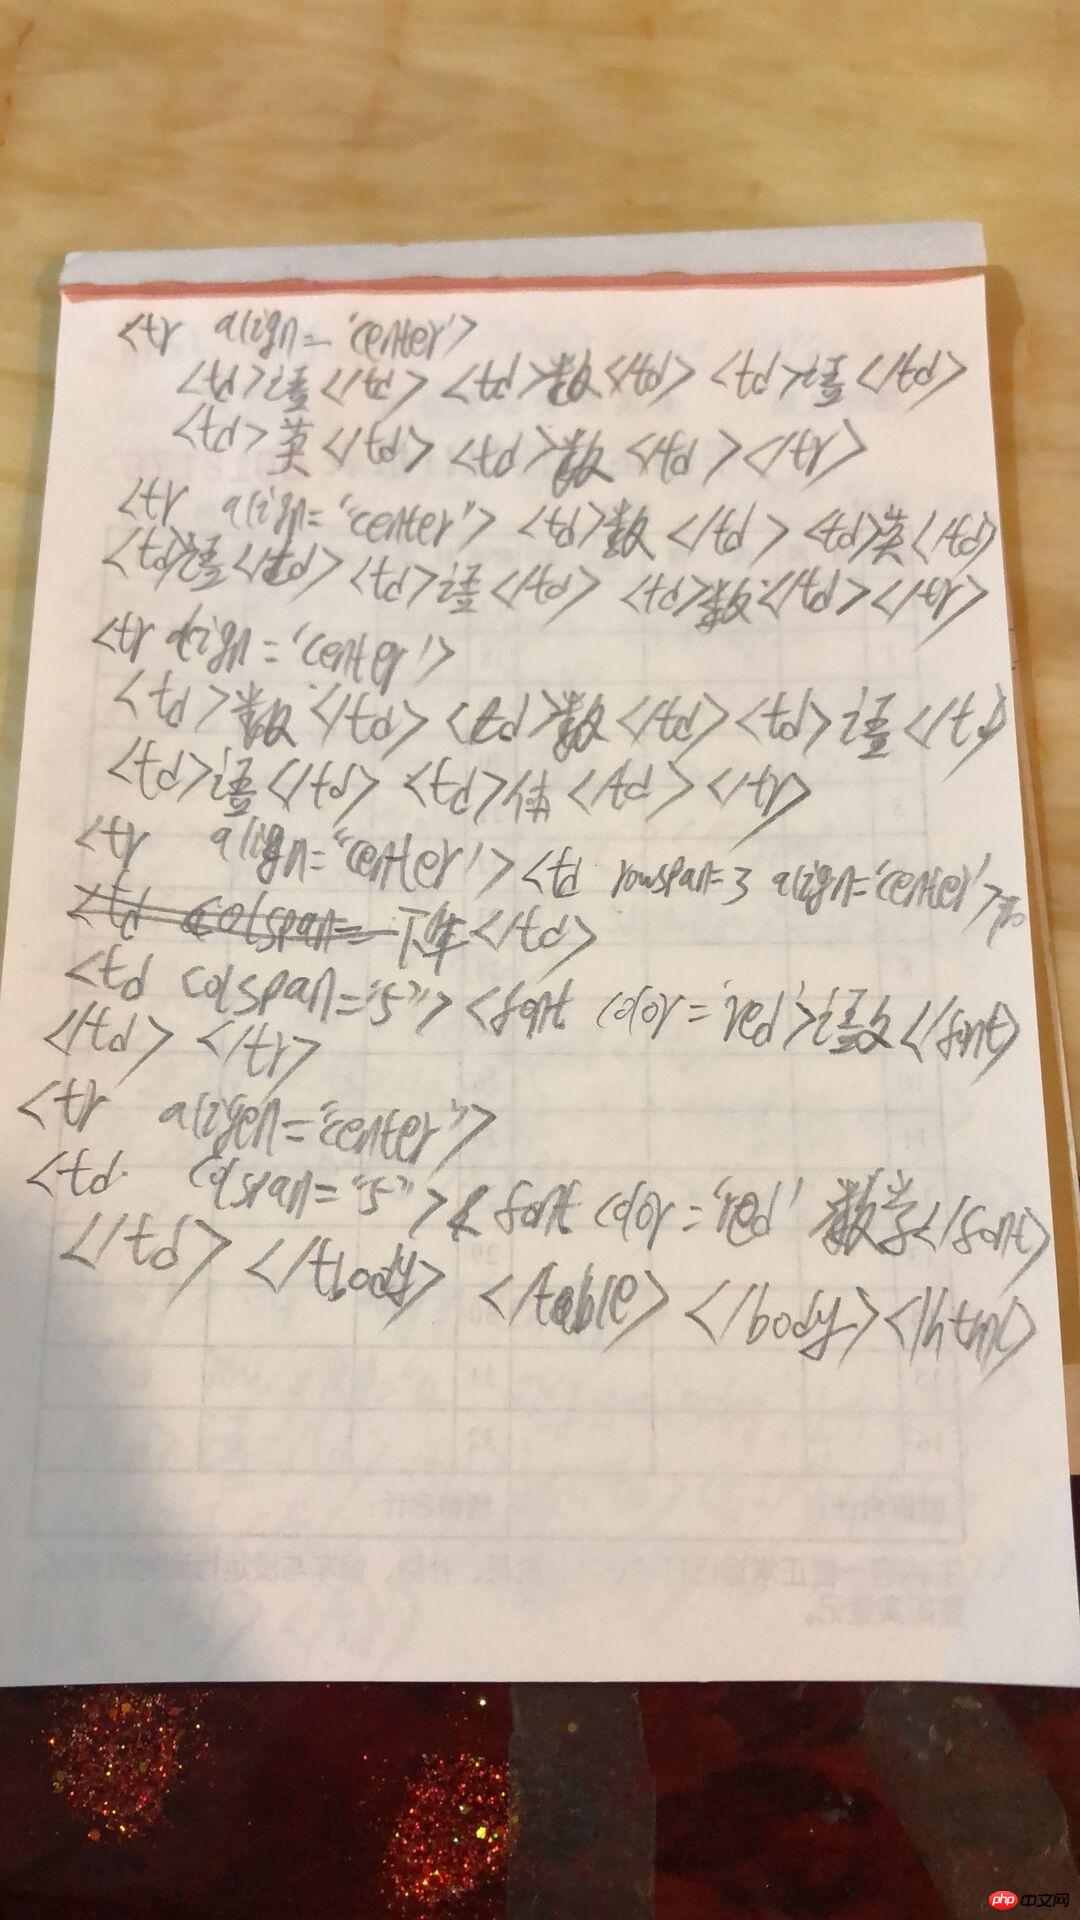 <tr align='center'>
<td>语</td> <td>数</td> <td>语</td>
<td>英</td> <td>数</td></tr>
<tr align="center"> <td>数</td> <td>英</td>
<td>语</td> <td>语</td> <td>数</td></tr>
<tr align='center'>
<td>数</td> <td>数</td> <td>语</td>
<td>语</td> <td>体</td></tr>
<tr align="center'><td rowspan=3 align='center'>
<td colspan= 下午</td>
<td colspan="5"><font color='red'>语文</font>
</td> </tr>
<tr aligen="center">
<td colspan="5"><font color='red' 数学</font>
</td> </tbody> </table> </body></html>
php 中文网